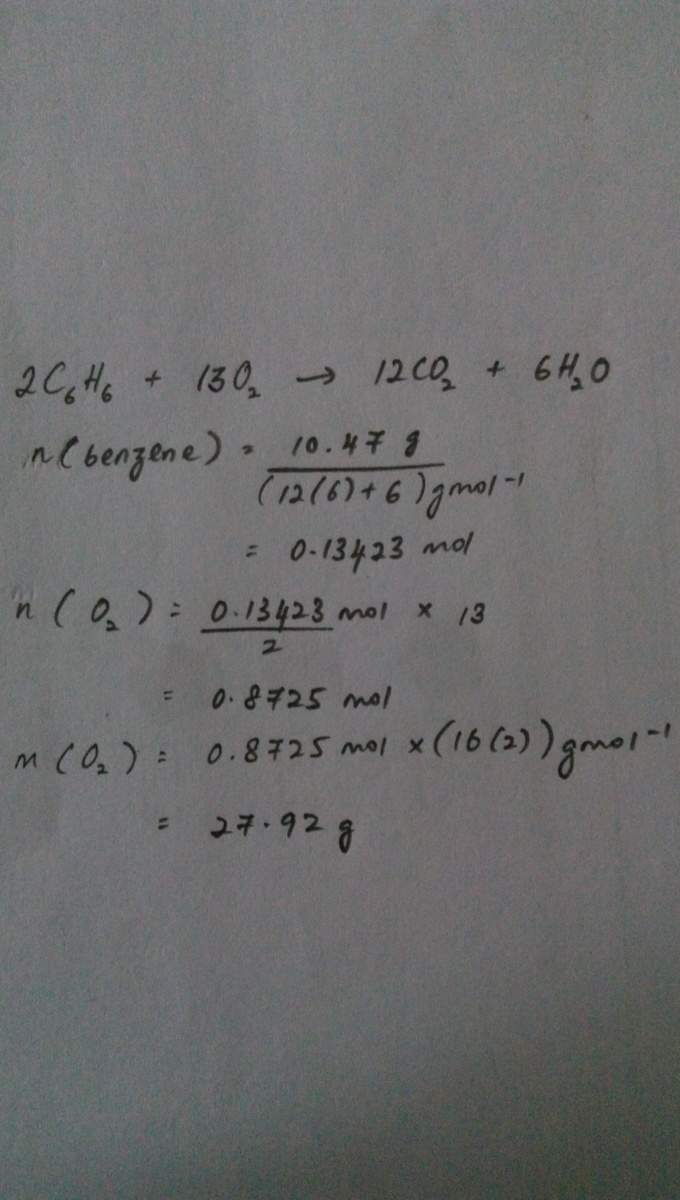 2C₆H₆ + 13O₂ → 12CO₂ + 6H₂O
n(benzene) = 10.47 g / (12(6)+6) gmol⁻¹
= 0.13423 mol
n(O₂) = 0.13423/2 mol × 13
= 0.8725 mol
m(O₂) = 0.8725 mol × (16(2)) gmol⁻¹
= 27.92 g